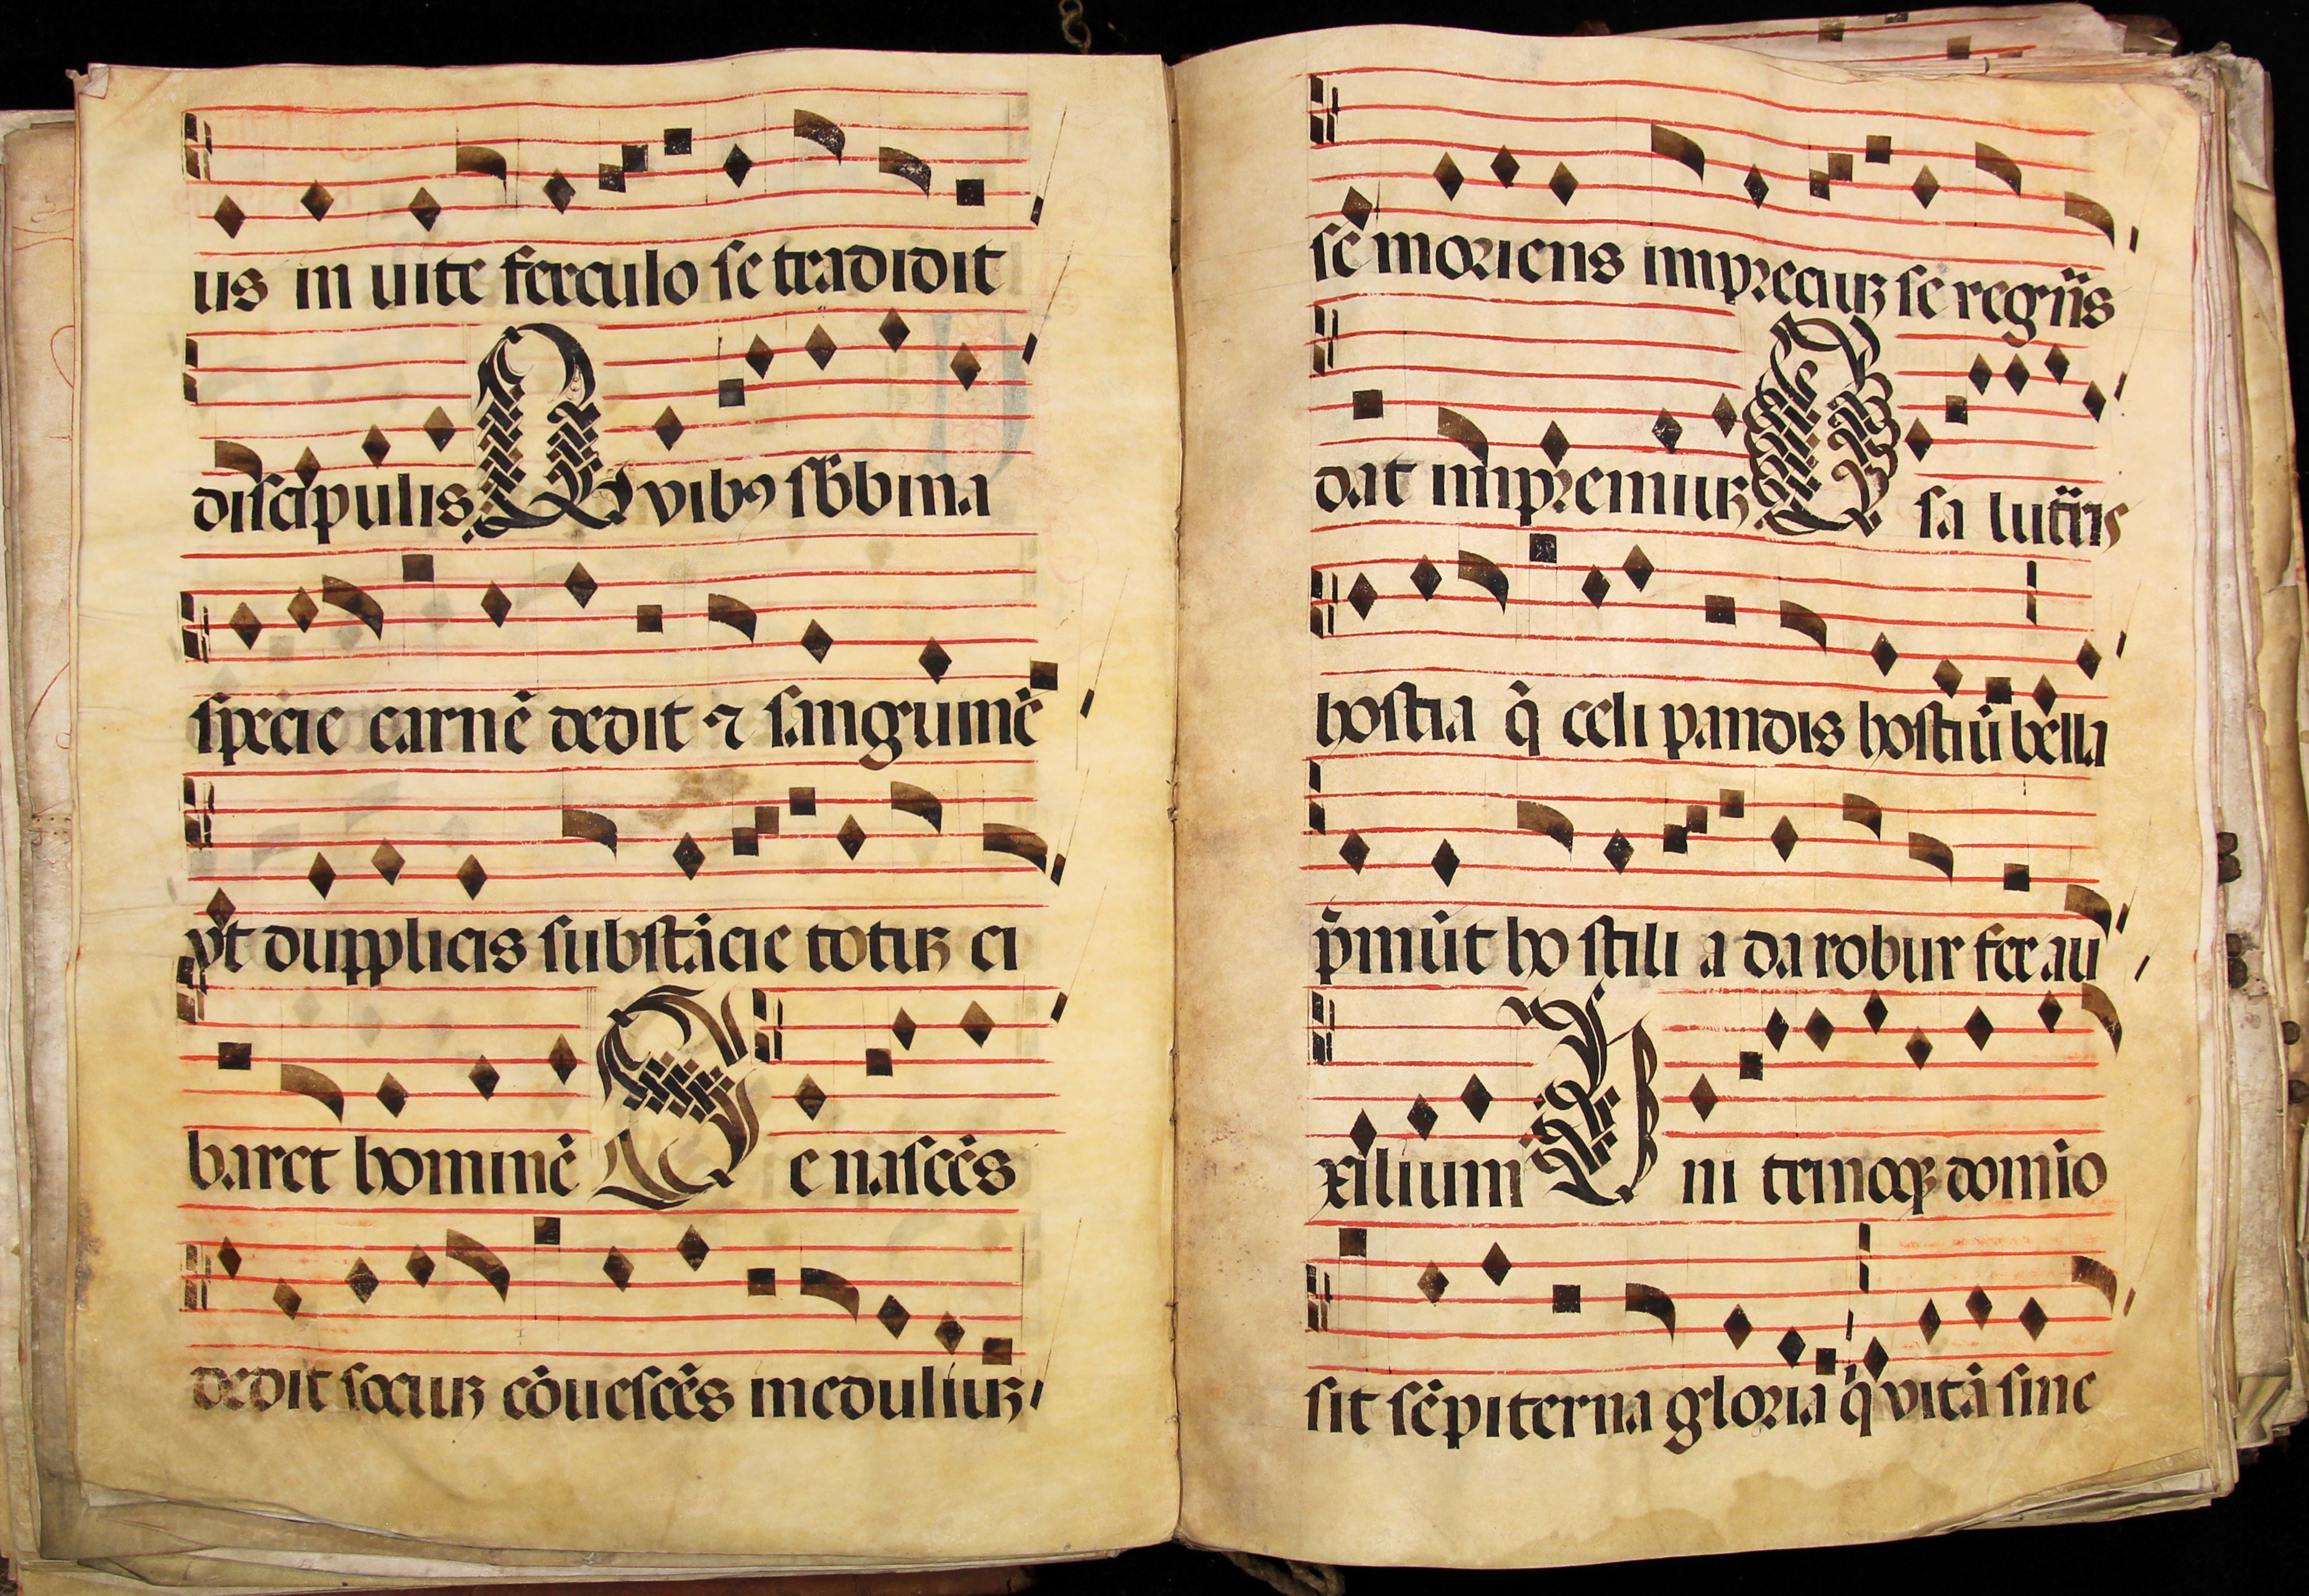 us in uite ferculo se tradidit
discipulis Quibꝰ sb̄ bina
specie carnē dedit ⁊ sanguinē
vt dupplicis substācie totuꝫ ci
baret hominē Se nascēs
dedit sociuꝫ cōuescēs in eduliuꝫ
se moriens in preciuꝫ se regnās
dat in premiuꝫ O salutaris
hostia q̄ celi pandis hostiū bella
p̄mūt hostilia da robur fer au
xilium Uni trinoqꝫ domīo
sit sēpiterna gloria q̄ vitā sine